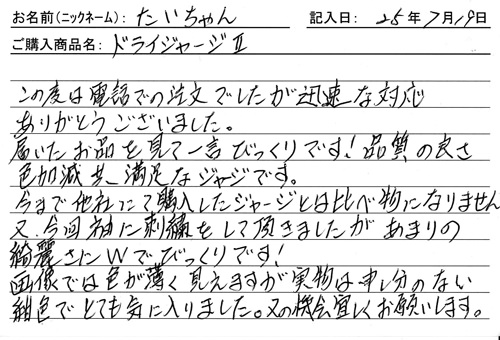 お名前(ニックネーム): たいちゃん 記入日: 25年7月19日
ご購入商品名: ドライジャージⅡ
この度は電話での注文でしたが迅速な対応
ありがとうございました。
届いたお品を見て一言びっくりです!品質の良さ
色加減共、満足なジャージです。
今まで他社にて購入したジャージとは比べ物になりません
又、今回袖に刺繍をして頂きましたがあまりの
綺麗さにWでびっくりです!
画像では色が薄く見えますが実物は申し分のない
紺色でとても気に入りました。又の機会宜しくお願いします。